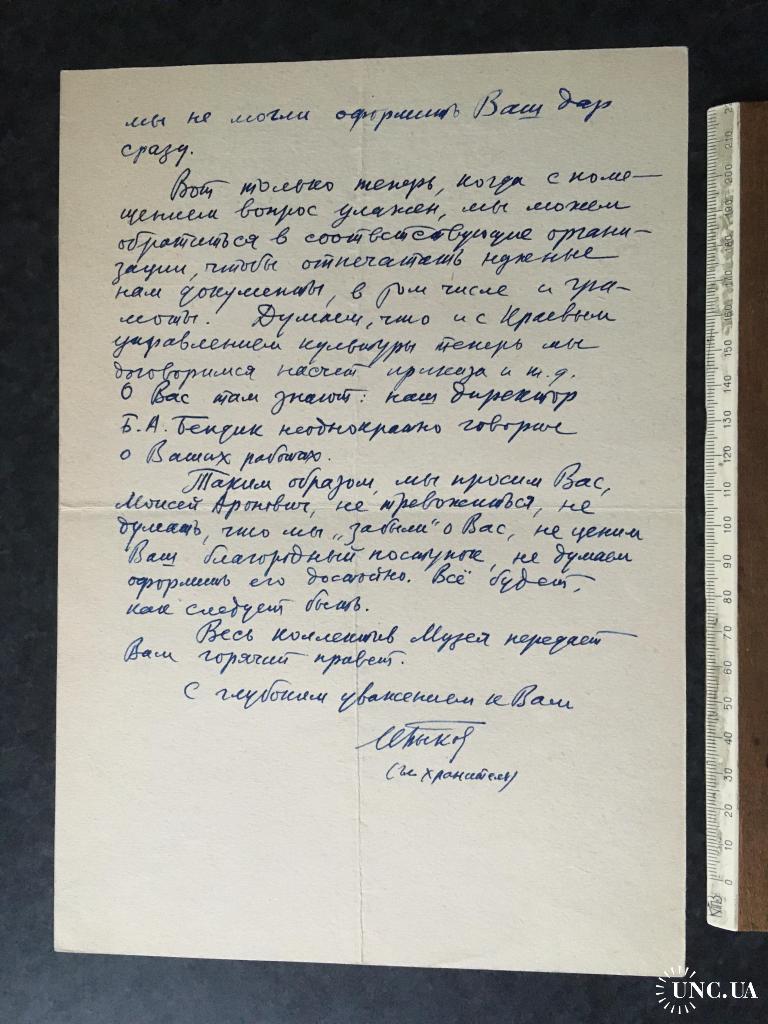 мы не могли оформить Ваш дар
сразу.
Вот только теперь, когда с поме-
щением вопрос улажен, мы можем
обратиться в соответствующие органи-
зации, чтобы отпечатать нужные
нам документы, в том числе и гра-
моты. Думаем, что и с Краевым
управлением культуры теперь мы
договоримся насчет приказа и т.д.
О Вас там знают: наш директор
Б.А. Бендик неоднократно говорил
о Ваших работах.
Таким образом, мы просим Вас,
Моисей Аронович, не тревожиться, не
думать, что мы „забыли" о Вас, не ценим
Ваш благородный поступок, не думаем
оформить его достойно. Всё будет,
как следует быть.
Весь коллектив Музея передает
Вам горячий привет.
С глубоким уважением к Вам
(гл. хранитель)
0 10 20 30 40 50 60 70 80 90 100 110 120 130 140 150 160 170 180 190 200 210
UNC.UA